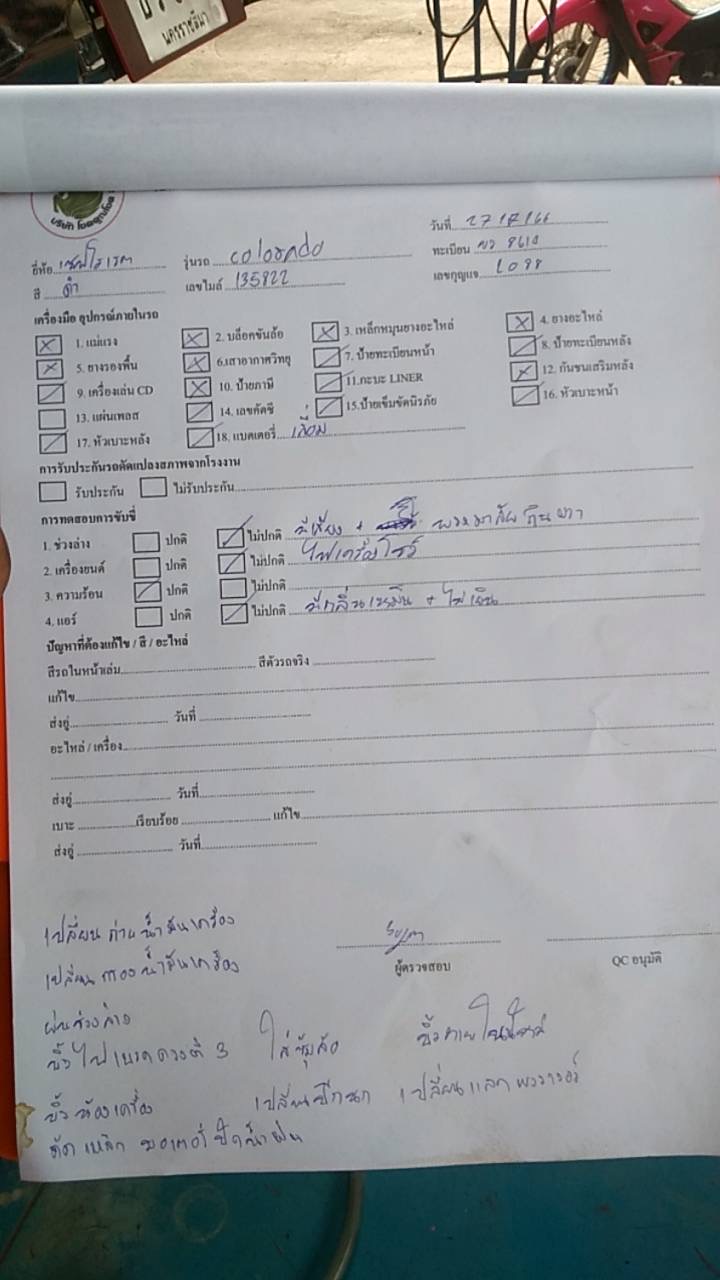 นครราชสีมา
วันที่ 27/7/66
ยี่ห้อ เชฟโรเรต รุ่นรถ colorado ทะเบียน
สี ดำ เลขไมล์ 135822 เลขกุญแจ
เครื่องมือ อุปกรณ์ภายในรถ
1. แม่แรง 2. บล็อคขันล้อ 3. เหล็กหมุนยางอะไหล่ 4. ยางอะไหล่
5. ยางรองพื้น 6.เสาอากาศวิทยุ 7. ป้ายทะเบียนหน้า 8. ป้ายทะเบียนหลัง
9. เครื่องเล่น CD 10. ป้ายภาษี 11.กะบะ LINER 12. กันชนเสริมหลัง
13. แผ่นเพลส 14. เลขคัดซี 15.ป้ายเข็มขัดนิรภัย 16. หัวเบาะหน้า
17. หัวเบาะหลัง 18. แบตเตอรี่ เสื่อม
การรับประกันรถดัดแปลงสภาพจากโรงงาน
รับประกัน ไม่รับประกัน
การทดสอบการขับขี่
1. ช่วงล่าง ปกติ ไม่ปกติ มีเสียง + พวงมาลัย กินขวา
2. เครื่องยนต์ ปกติ ไม่ปกติ ไฟเครื่องโชว์
3. ความร้อน ปกติ ไม่ปกติ
4. แอร์ ปกติ ไม่ปกติ มีกลิ่นเหม็น + ไม่เย็น
ปัญหาที่ต้องแก้ไข / สี / อะไหล่
สีรถในหน้าเล่ม สีตัวรถจริง
แก้ไข
ส่งอู่ วันที่
อะไหล่ / เครื่อง
ส่งอู่ วันที่
เบาะ เรียบร้อย แก้ไข
ส่งอู่ วันที่
เปลี่ยน ถ่ายน้ำมันเครื่อง
เปลี่ยน กรองน้ำมันเครื่อง
ผู้ตรวจสอบ QC อนุมัติ
พ่นช่วงล่าง
ไฟเบรคดวงที่ 3 ใส่ซุ้มล้อ
ห้องเครื่อง เปลี่ยนปีกนก เปลี่ยนแลคพวงมาลัย
ดัด เหล็ก มอเตอร์ปัดน้ำฝน